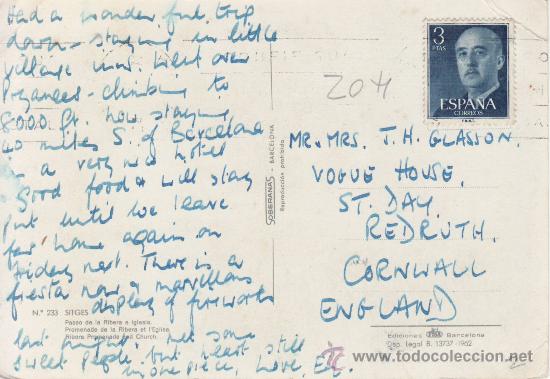 Had a wonderful trip
down - staying in little
village inns. Went over
Pyranees - climbing to
8000 ft. now staying
40 miles S. of Barcelona
in a very nice hotel
Good food & will stay
put until we leave
for home again on
friday next. There is a
fiesta now & marvellous
display of fireworks
last night. Met some
sweet people. but heart still
in one piece, Love,
N.º 233 SITGES
Paseo de la Ribera e Iglesia.
Promenade de la Ribera et l'Eglise
Ribera Promenade and Church.
SOBERANAS - BARCELONA
Reproducción prohibida
204
3
PTAS
ESPAÑA
CORREOS
MR. MRS. J. H. GLASSON.
VOGUE HOUSE.
ST. DAY.
REDRUTH.
CORNWALL
ENGLAND
Ediciones Barcelona
Dep. legal B. 13737-1962
www.todocoleccion.net